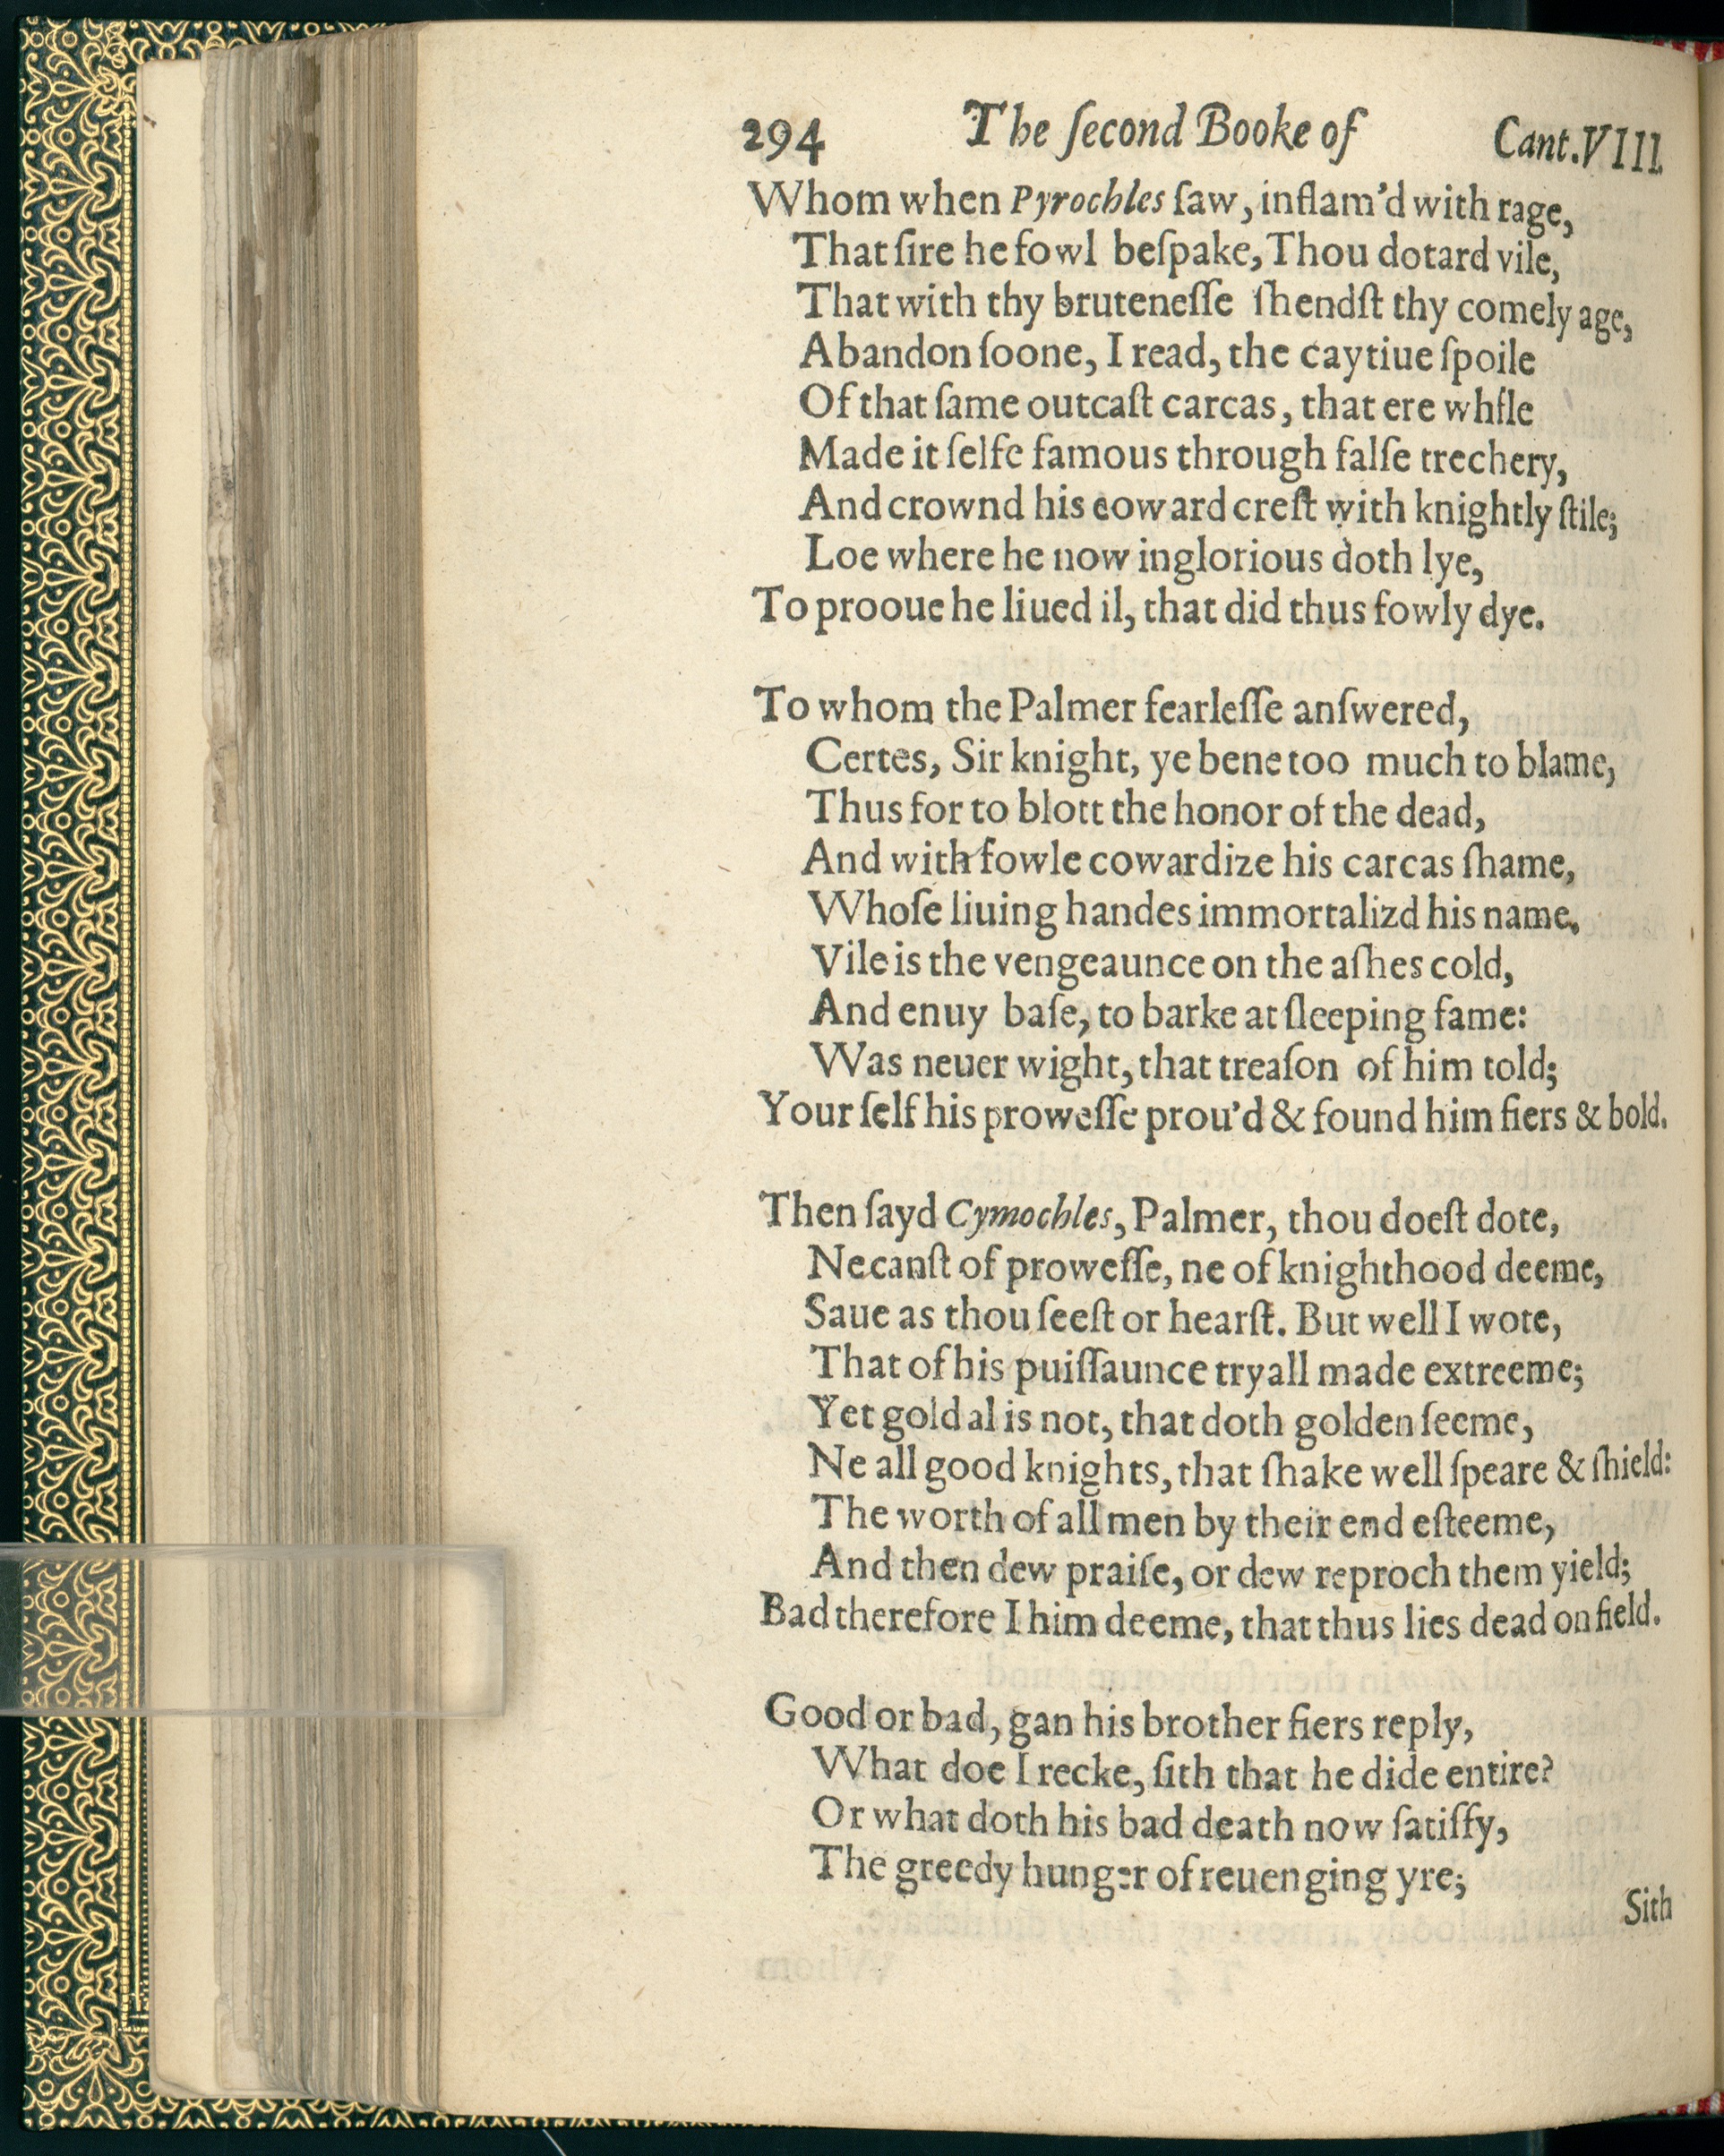 294 The ſecond Booke of Cant.VIII.
Whom when Pyrochles ſaw, inflam'd with rage,
That ſire he fowl beſpake, Thou dotard vile,
That with thy bruteneſſe ſhendſt thy comely age,
Abandon ſoone, I read, the caytiue ſpoile
Of that ſame outcaſt carcas, that ere while
Made it ſelfe famous through falſe trechery,
And crownd his coward creſt with knightly ſtile;
Loe where he now inglorious doth lye,
To prooue he liued il, that did thus fowly dye.
To whom the Palmer fearleſſe anſwered,
Certes, Sir knight, ye bene too much to blame,
Thus for to blott the honor of the dead,
And with fowle cowardize his carcas ſhame,
Whoſe liuing handes immortalizd his name.
Vile is the vengeaunce on the aſhes cold,
And enuy baſe, to barke at ſleeping fame:
Was neuer wight, that treaſon of him told;
Your ſelf his proweſſe prou'd & found him fiers & bold.
Then ſayd Cymochles, Palmer, thou doeſt dote,
Ne canſt of proweſſe, ne of knighthood deeme,
Saue as thou ſeeſt or hearſt. But well I wote,
That of his puiſſaunce tryall made extreeme;
Yet gold al is not, that doth golden ſeeme,
Ne all good knights, that ſhake well ſpeare & ſhield:
The worth of all men by their end eſteeme,
And then dew praiſe, or dew reproch them yield;
Bad therefore I him deeme, that thus lies dead on field.
Good or bad, gan his brother fiers reply,
What doe I recke, ſith that he dide entire?
Or what doth his bad death now ſatiſfy,
The greedy hunger of reuenging yre;
Sith